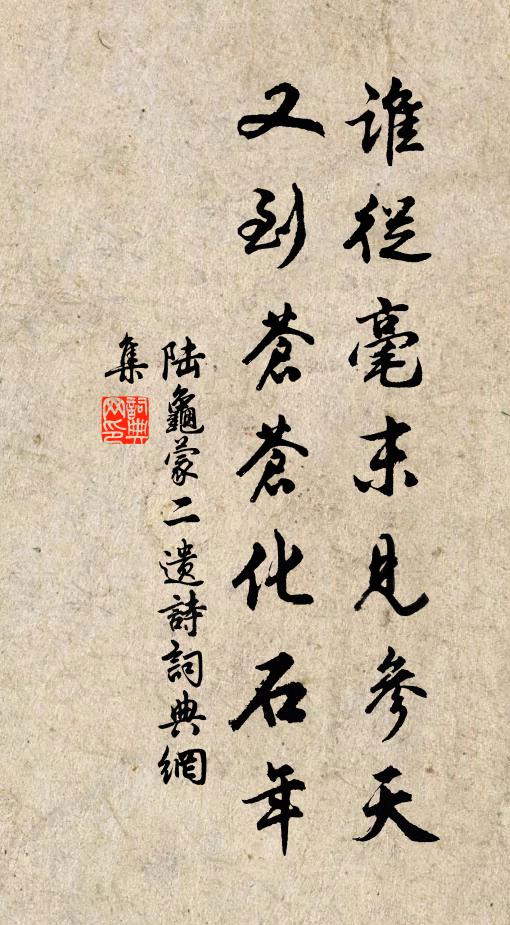 誰從毫末見參天
又到蒼蒼化石年
陆龜蒙二遗詩詞典網
集
詞典網印